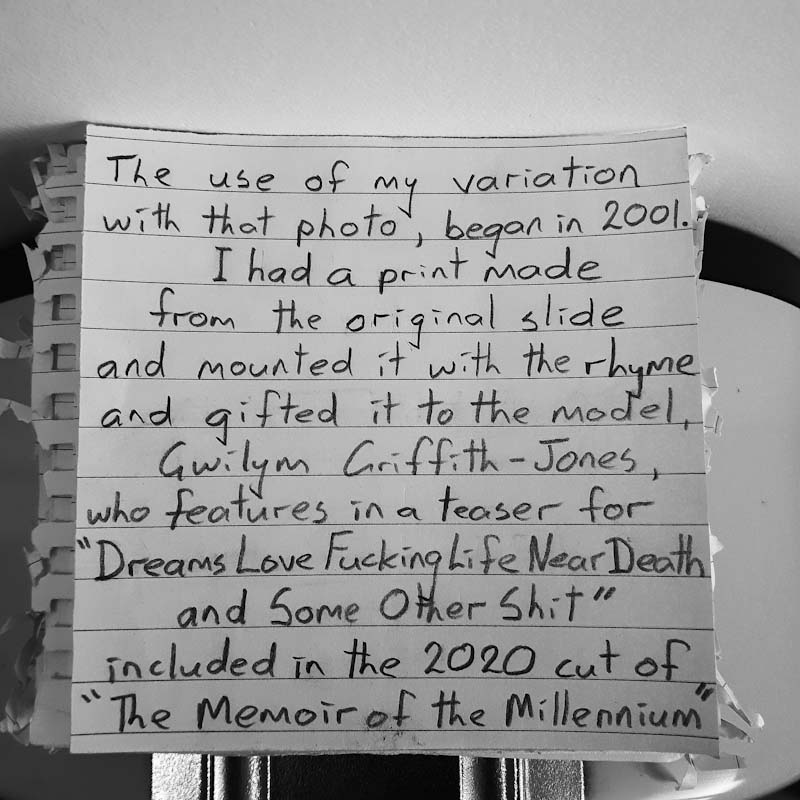 The use of my variation
with that photo, began in 2001.
I had a print made
from the original slide
and mounted it with the rhyme
and gifted it to the model,
Gwilym Griffith-Jones,
who features in a teaser for
"Dreams Love Fucking Life Near Death
and Some Other Shit"
included in the 2020 cut of
"The Memoir of the Millennium"